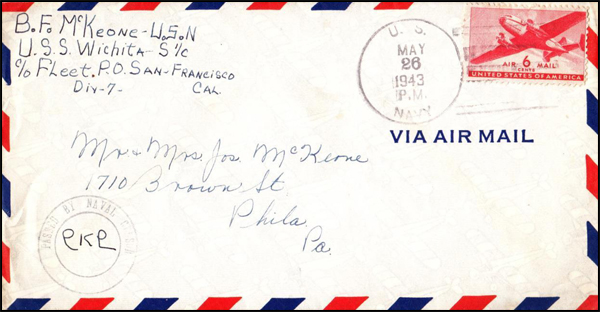 B.F. McKeone-U.S.N
U.S.S. Wichita-S 1/c
c/o Fleet.P.O. San-Francisco
Div-7- CAL.
U. S.
MAY
26
1943
P.M.
NAVY
AIR 6 MAIL
CENTS
UNITED STATES OF AMERICA
VIA AIR MAIL
Mr & Mrs. Jos. McKeone
1710 Brown St.
Phila
Pa.
PASSED BY NAVAL CENSOR